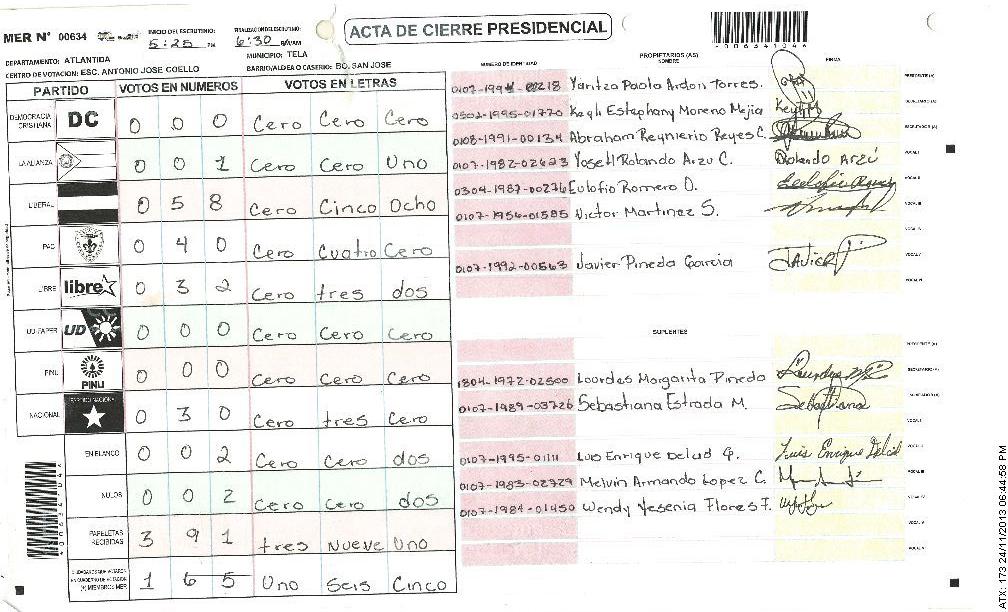 MER N° 00634
INICIO DEL ESCRUTINIO: 5:25 PM
FINALIZACION DEL ESCRUTINIO: 6:30
ACTA DE CIERRE PRESIDENCIAL
*00634104*
DEPARTAMENTO: ATLANTIDA
MUNICIPIO: TELA
CENTRO DE VOTACION: ESC. ANTONIO JOSE COELLO
BARRIO/ALDEA O CASERIO: BO. SAN JOSE
PARTIDO VOTOS EN NUMEROS VOTOS EN LETRAS
DEMOCRACIA CRISTIANA DC 0 0 0 Cero Cero Cero
LA ALIANZA 0 0 1 Cero Cero Uno
LIBERAL 0 5 8 Cero Cinco Ocho
PAC 0 4 0 Cero Cuatro Cero
LIBRE libre 0 3 2 Cero tres dos
UD-FAPER UD 0 0 0 Cero Cero Cero
PINU PINU 0 0 0 Cero Cero Cero
NACIONAL PARTIDO NACIONAL 0 3 0 Cero tres Cero
EN BLANCO 0 0 2 Cero Cero dos
NULOS 0 0 2 Cero Cero dos
PAPELETAS RECIBIDAS 3 9 1 tres Nueve Uno
CIUDADANOS QUE VOTARON EN CUADERNO DE VOTACION (+) MIEMBROS MER 1 6 5 Uno Seis Cinco
NUMERO DE IDENTIDAD
PROPIETARIOS (AS)
NOMBRE
FIRMA
Yaritza Paola Ardon Torres. PRESIDENTE (A)
0502-1995-01770 Keyli Estephany Moreno Mejia Keyli M SECRETARIO (A)
0108-1991-00134 Abraham Reynierio Reyes C. ESCRUTADOR (A)
0107-1982-02623 Yosell Rolando Arzu C. Rolando Arzú VOCAL I
0304-1987-00276 Eulofio Romero O. VOCAL II
0107-1956-01585 Victor Martinez S. VOCAL III
VOCAL IV
0107-1992-00563 Javier Pineda Garcia JAVIER P VOCAL V
VOCAL VI
SUPLENTES
PRESIDENTE (A)
1804-1972-02500 Lourdes Margarita Pineda SECRETARIO (A)
0107-1989-03726 Sebastiana Estrada M. Sebastiana ESCRUTADOR (A)
VOCAL I
0107-1995-01111 Luis Enrique Delcid G. Luis Enrique Delcid VOCAL II
0107-1983-02729 Melvin Armando Lopez C. VOCAL III
0107-1984-01450 Wendy Yesenia Flores F. VOCAL IV
VOCAL V
VOCAL VI
*00634104*
ATX: 173 24/11/2013 06:44:58 PM